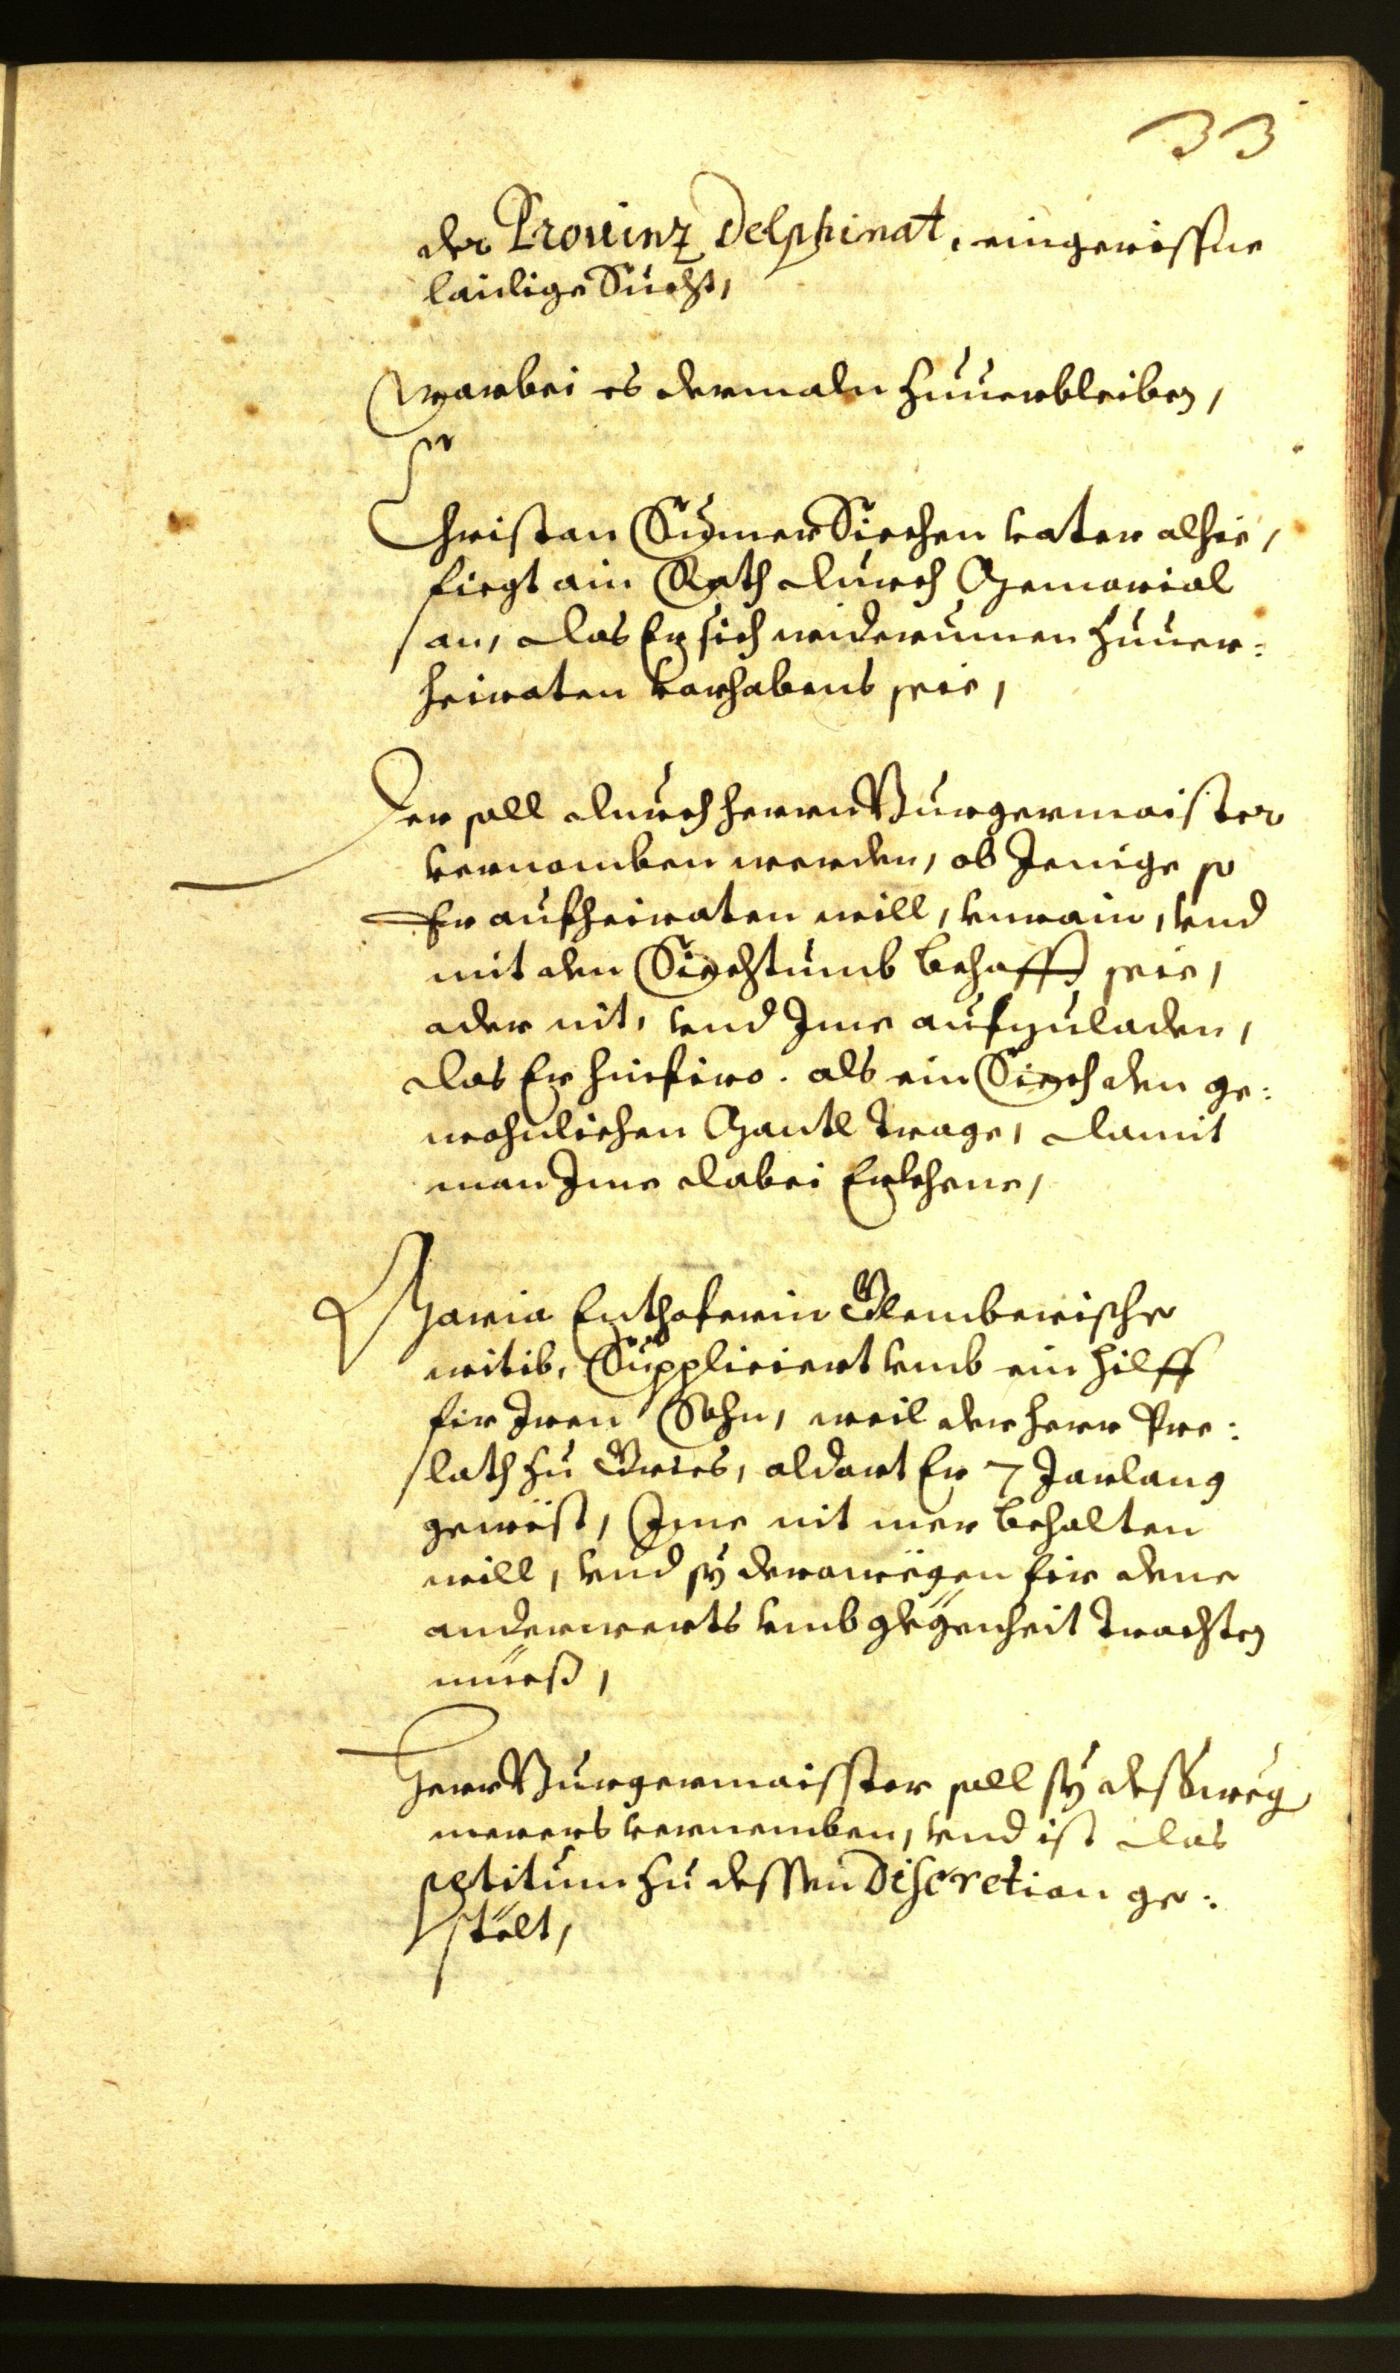 33
der Prouinz Delphinat, eingerissne
laidige Sucht,
Warbei es dermaln zuuerbleiben,
Christan Sumer Siechen vater alhie,
fiegt ain Rath durch Memorial
an, das Er sich widerumen zuuer=
heiraten vorhabens seie,
Der soll durch herrn Burgermaister
vernomben werden, ob Jenige so
Er aufheiraten will, vnrain, vnd
mit den Siechtumb behafft seie,
oder nit, vnd Ime aufzuladen,
das Er hinfiro. als ein Siech den ge=
wohnlichen Mantl trage, damit
man Ime dabei Erkhene,
Maria Enthoferin
witib, Suppliciert vmb ein hilff
fir Iren Sohn, weil der herr Pre=
lath zu Gries, aldort Er 7 Jar lang
gewest, Ime nit mer behalten
will, vnd sy derowegen fir dene
anderwerts vmb glegenheit trachten
müeß,
Herr Burgermaisster soll sy desßweg
merers vernemben, vnd ist das
petitum zu dessen Discretion ge=
stelt,